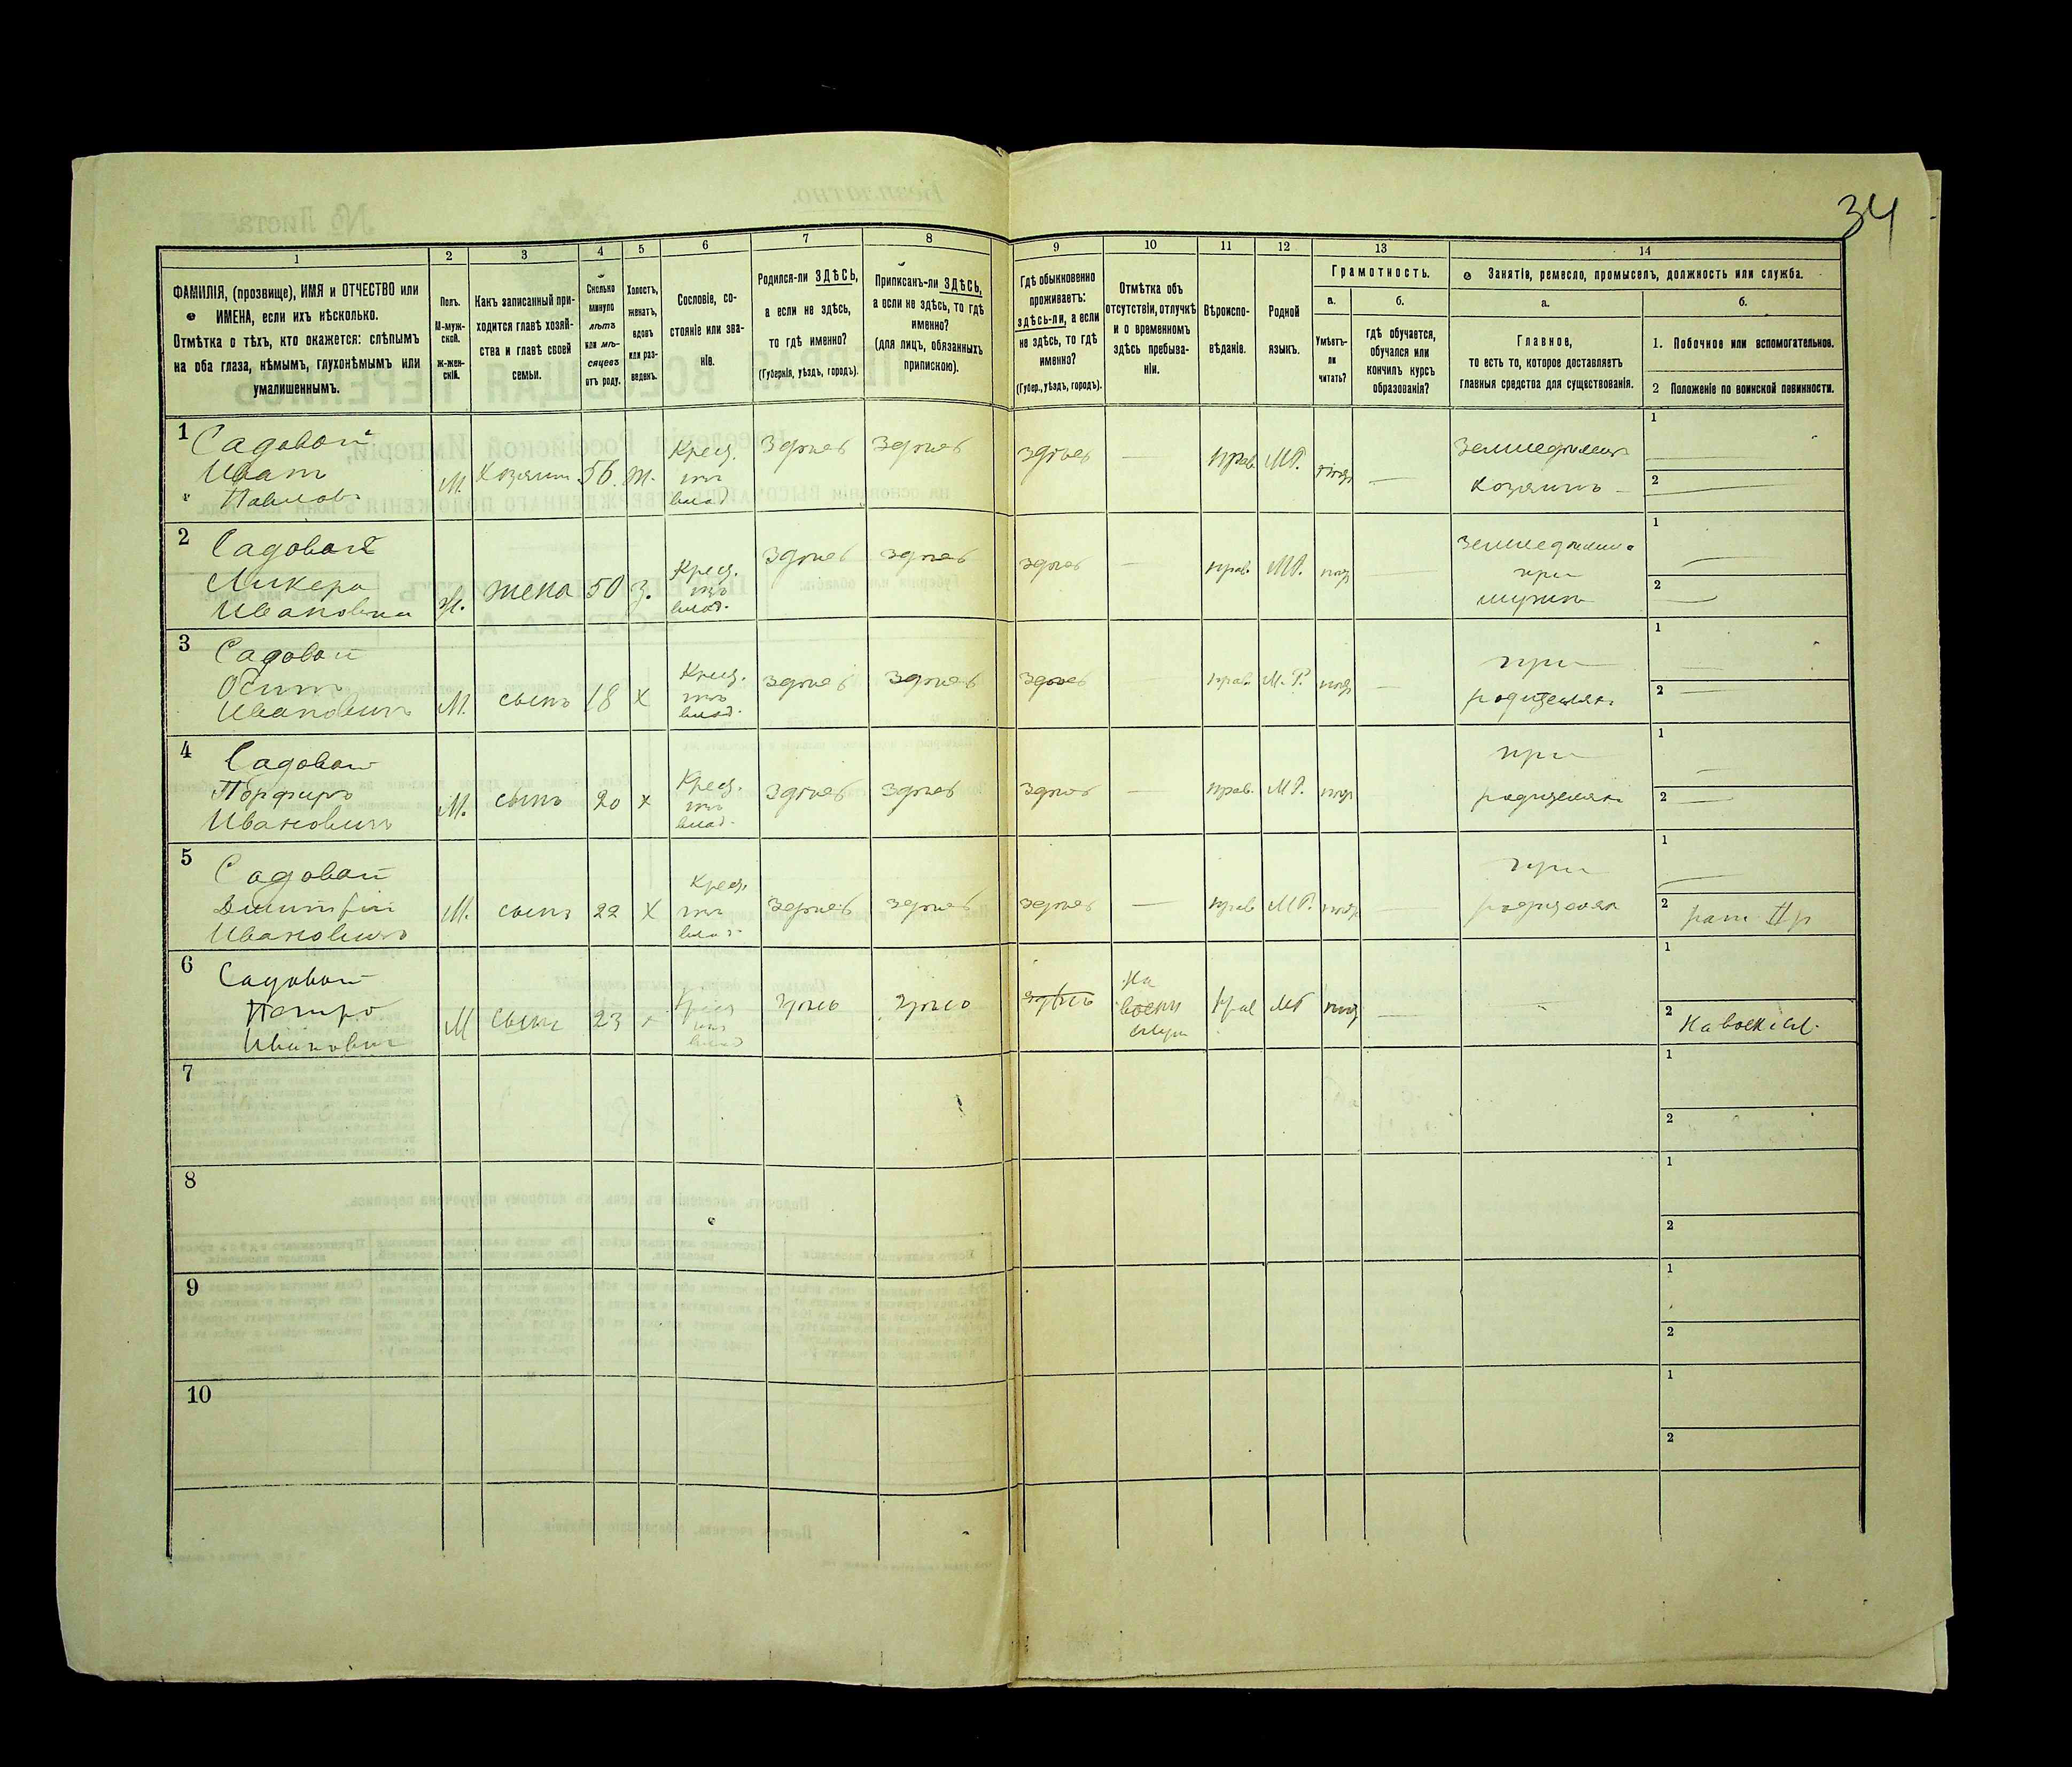 34
1 2 3 4 5 6 7 8 9 10 11 12 13 14
ФАМИЛІЯ, (прозвище), ИМЯ и ОТЧЕСТВО или
ИМЕНА, если ихъ нѣсколько.
Отмѣтка о тѣхъ, кто окажется: слѣпымъ
на оба глаза, нѣмымъ, глухонѣмымъ или
умалишеннымъ.
Полъ.
М-муж-
ской.
ж-жен-
скій.
Какъ записанный при-
ходится главѣ хозяй-
ства и главѣ своей
семьи.
Сколько
минуло
лѣтъ
или мѣ-
сяцевъ
отъ роду.
Холостъ,
женатъ,
вдовъ
или раз-
веденъ.
Сословіе, со-
стояніе или зва-
ніе.
Родился-ли ЗДѢСЬ,
а если не здѣсь,
то гдѣ именно?
(Губернія, уѣздъ, городъ).
Приписанъ-ли ЗДѢСЬ,
а если не здѣсь, то гдѣ
именно?
(для лицъ, обязанныхъ
припискою).
Гдѣ обыкновенно
проживаетъ:
здѣсь-ли, а если
не здѣсь, то гдѣ
именно?
(Губер., уѣздъ, городъ).
Отмѣтка объ
отсутствіи, отлучкѣ
и о временномъ
здѣсь пребыва-
ніи.
Вѣроиспо-
вѣданіе.
Родной
языкъ.
Грамотность.
а.
Умѣетъ-
ли
читать?
б.
гдѣ обучается,
обучался или
кончилъ курсъ
образованія?
Занятія, ремесло, промыселъ, должность или служба.
а.
Главное,
то есть то, которое доставляетъ
главныя средства для существованія.
б.
1. Побочное или вспомогательное.
2 Положеніе по воинской повинности.
1
Садовой
Иванъ
Павловъ
М. Хозяинъ 56. Ж.
Крест.
изъ
влад.
Здѣсь Здѣсь здѣсь — прав. МР. —
Земледѣлецъ
хозяинъ —
1
2
2
Садовая
Ликера
Ивановна
Ж. жена 50 З.
Крест.
изъ
влад.
Здѣсь здѣсь здѣсь — прав. МР. —
Земледѣлец.
при
мужѣ
1
2
3
Садовой
Осипъ
Ивановичъ
М. сынъ 18 Х
Крест.
изъ
влад.
здѣсь здѣсь здѣсь — прав. М.Р. —
при
родителях.
1
2
4
Садовой
Порфиръ
Ивановичъ
М. сынъ 20 х
Крест.
изъ
влад.
здѣсь здѣсь здѣсь — прав. МР. —
при
родителях.
1
2
5
Садовой
Дмитрій
Ивановичъ
М. сынъ 22 Х
Крест.
изъ
влад.
здѣсь здѣсь здѣсь — прав. МР. —
при
родителях
1
2 рат. II р
6
Садовой
Петро
Иванович
М сынъ 23 х
Крест
изъ
влад
здѣсь здѣсь здѣсь
На
воен
служ
прав МР —
1
2 На воен. сл.
7
1
2
8
1
2
9
1
2
10
1
2